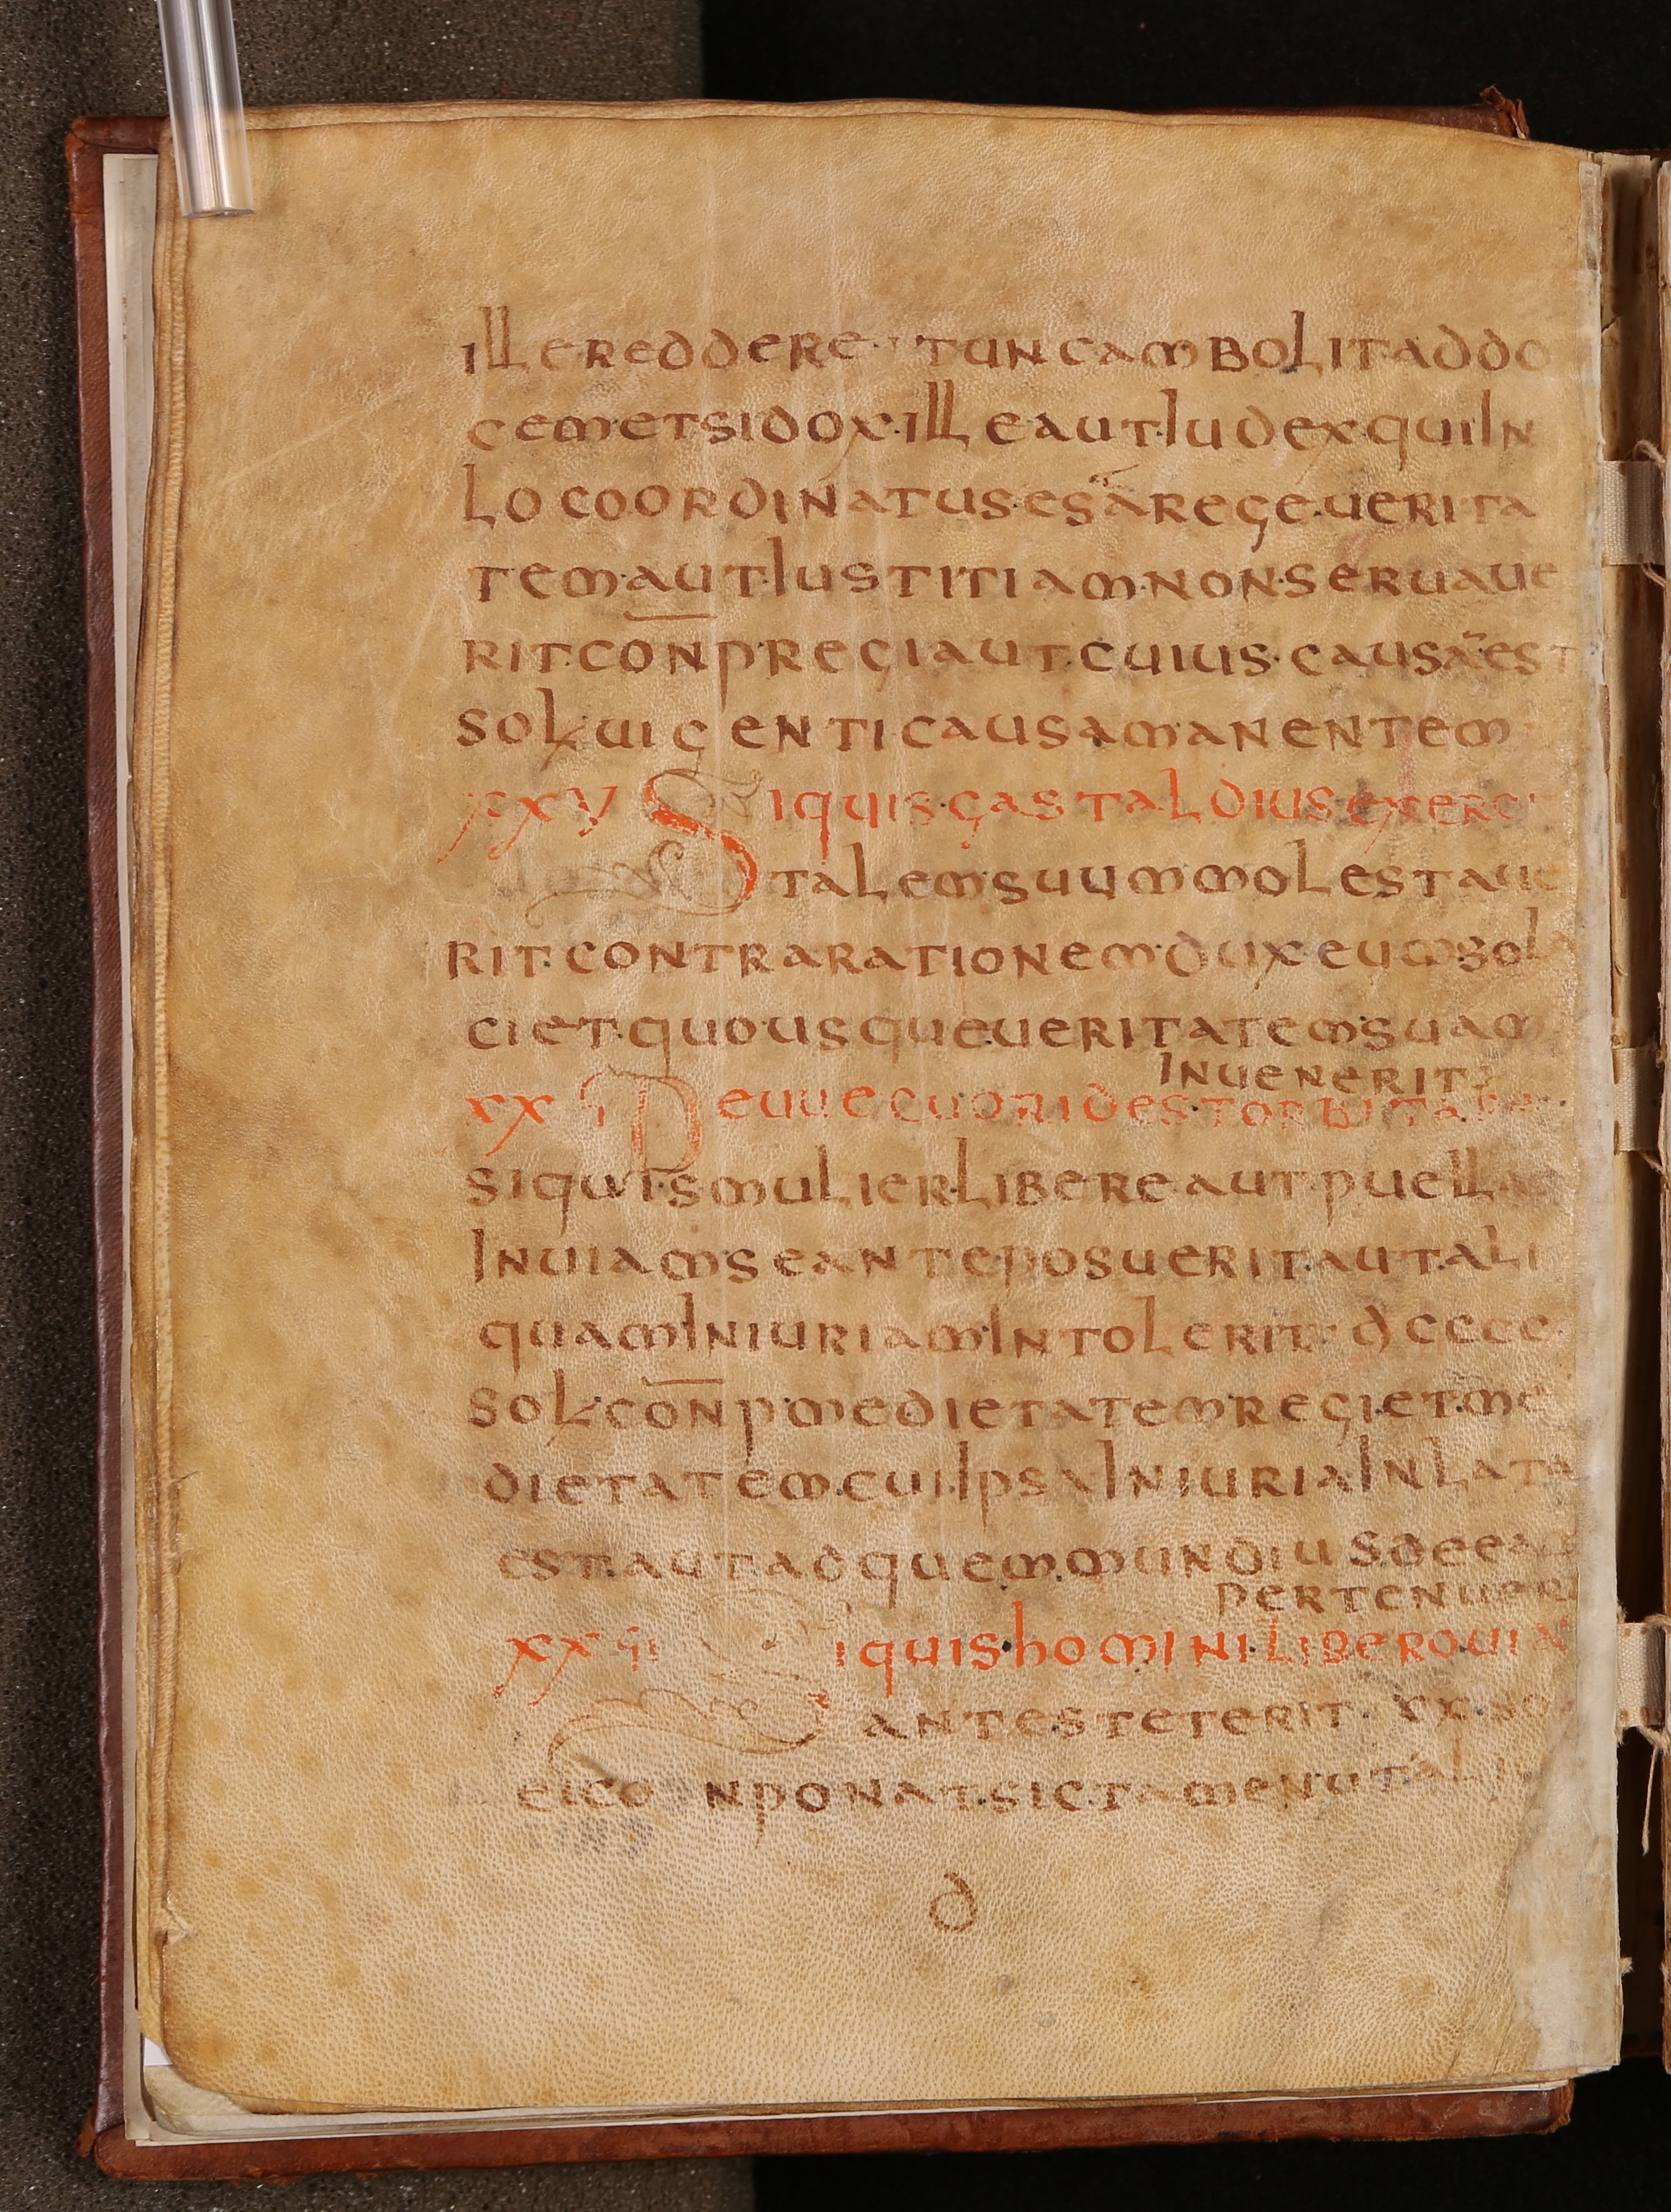 illereddere· tuncambolitaddo
cemetsidox·illeaut·Iudex·quiIn
locoordinatus·es·āregeuerita
tem·autIustitiam·non·seruaue
rit·con̄p·regi·aut·cuius·causa·est
sol·uigenticausamanentem
xxv Siquis·gastaldius exerci
talem·suummolestaue
rit·contrarationem·dux·eum·sola
ciet·quousqueueritatem·suam
Inuenerit·
xxvi Deuuecuoridestorbitari
siquis·mulier·libere·aut·puella
Inuiam·seanteposuerit·aut·ali
quamIniuriam·Intolerit· dcccc
sol·con̄p·medietatem·regi·et·me
dietatem·cuiIpsaIniuriaInlata
est·aut·adquem·mundius·deea
pertenueri
xxvii iquis·homini·libero·uia
antesteterit· xx·so
eico nponat·sic·tamenutali
d